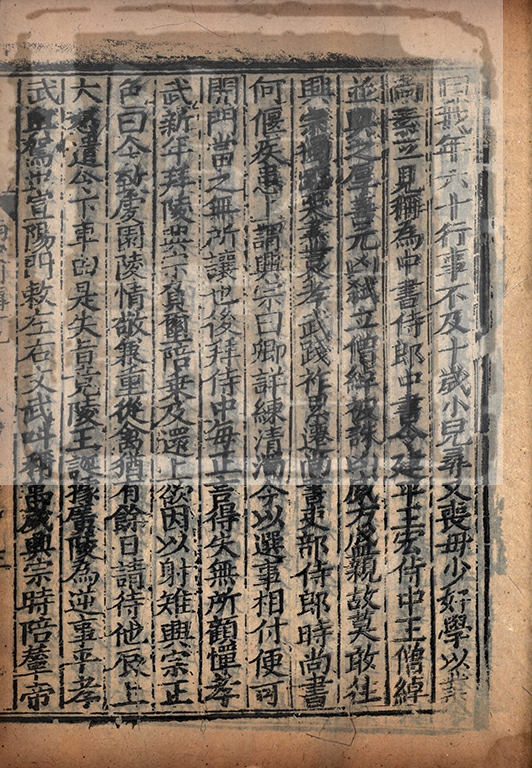 曰我年六十行事不及十歲小兒尋又喪母少好學以業
尚素立見稱為中書侍郎中書令建平王宏侍中王僧綽
並與之厚善元凶弒立僧綽被誅凶威方盛親故莫敢往
興宗獨臨哭盡哀孝武踐祚累遷尚書吏部侍郎時尚書
何偃疾患上謂興宗曰卿詳練清濁今以選事相付便可
開門當之無所讓也後拜侍中每正言得失無所顧憚孝
武新年拜陵興宗負璽陪乘及還上欲因以射雉興宗正
色曰今致虔園陵情敬兼重從禽猶有餘日請待他辰上
大怒遣令下車由是失旨竟陵王誕據廣陵為逆事平孝
武輿駕出宣陽門敕左右文武叫稱萬歲興宗時陪輦帝